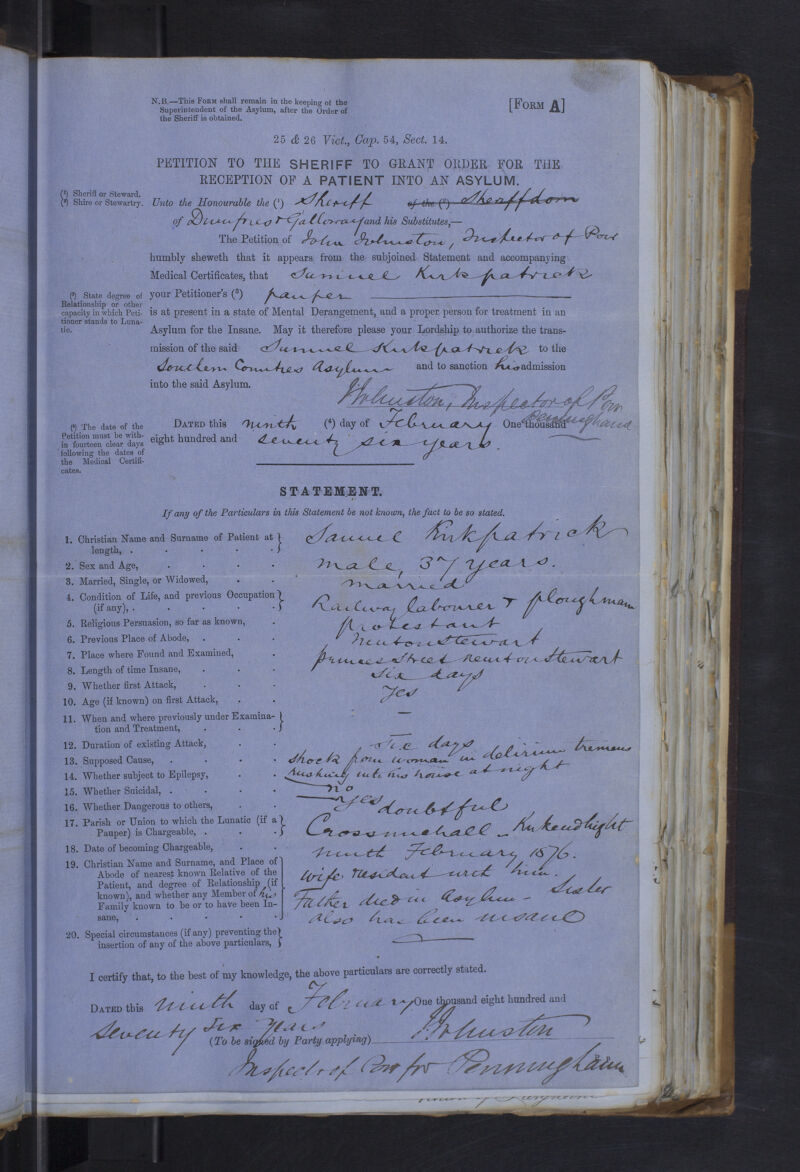 N.B.—This FORM shall remain in the keeping of the
Superintendent of the Asylum, after the Order of
the Sheriff is obtained.
[FORM A]
25 & 26 Vict., Cap. 54, Sect. 14.
PETITION TO THE SHERIFF TO GRANT ORDER FOR THE
RECEPTION OF A PATIENT INTO AN ASYLUM.
(¹) Sheriff or Steward.
(²) Shire or Stewartry.
Unto the Honourable the (¹) Sheriff of the (²) Sheriffdom
of Dumfries & Galloway and his Substitutes,—
The Petition of John Johnston, Inspector of Poor
humbly sheweth that it appears from the subjoined Statement and accompanying
Medical Certificates, that Samuel Kirkpatrick
(³) State degree of
Relationship or other
capacity in which Peti-
tioner stands to Luna-
tic.
your Petitioner's (³) pauper
is at present in a state of Mental Derangement, and a proper person for treatment in an
Asylum for the Insane. May it therefore please your Lordship to authorize the trans-
mission of the said Samuel Kirkpatrick to the
Southern Counties Asylum and to sanction his admission
into the said Asylum.
J Johnston, Inspector of Poor
Penninghame
(⁴) The date of the
Petition must be with-
in fourteen clear days
following the dates of
the Medical Certifi-
cates.
DATED this ninth (⁴) day of February One thousand
eight hundred and seventy six years.
STATEMENT.
If any of the Particulars in this Statement be not known, the fact to be so stated.
1. Christian Name and Surname of Patient at length, . Samuel Kirkpatrick
2. Sex and Age, male, 37 years.
3. Married, Single, or Widowed, married
4. Condition of Life, and previous Occupation (if any), . Railway labourer & ploughman
5. Religious Persuasion, so far as known, protestant
6. Previous Place of Abode, Newton Stewart
7. Place where Found and Examined, princes Street Newton Stewart
8. Length of time Insane, Six days
9. Whether first Attack, Yes
10. Age (if known) on first Attack,
11. When and where previously under Examina-tion and Treatment, —
12. Duration of existing Attack, Six days
13. Supposed Cause, shock from woman in delirium tremens
14. Whether subject to Epilepsy, rushing into his house at night
15. Whether Suicidal, . no
16. Whether Dangerous to others, yes doubtful
17. Parish or Union to which the Lunatic (if a Pauper) is Chargeable, . Crossmichael - Kirkcudbright
18. Date of becoming Chargeable, ninth February 1876.
19. Christian Name and Surname, and Place of
Abode of nearest known Relative of the
Patient, and degree of Relationship (if
known), and whether any Member of his
Family known to be or to have been In-
sane,
wife resident with him.
Father died in Asylum - Sister
also has been insane
20. Special circumstances (if any) preventing the insertion of any of the above particulars, —
I certify that, to the best of my knowledge, the above particulars are correctly stated.
DATED this ninth day of February One thousand eight hundred and
seventy six years
(To be signed by Party applying) J Johnston
Inspector of Poor for Penninghame